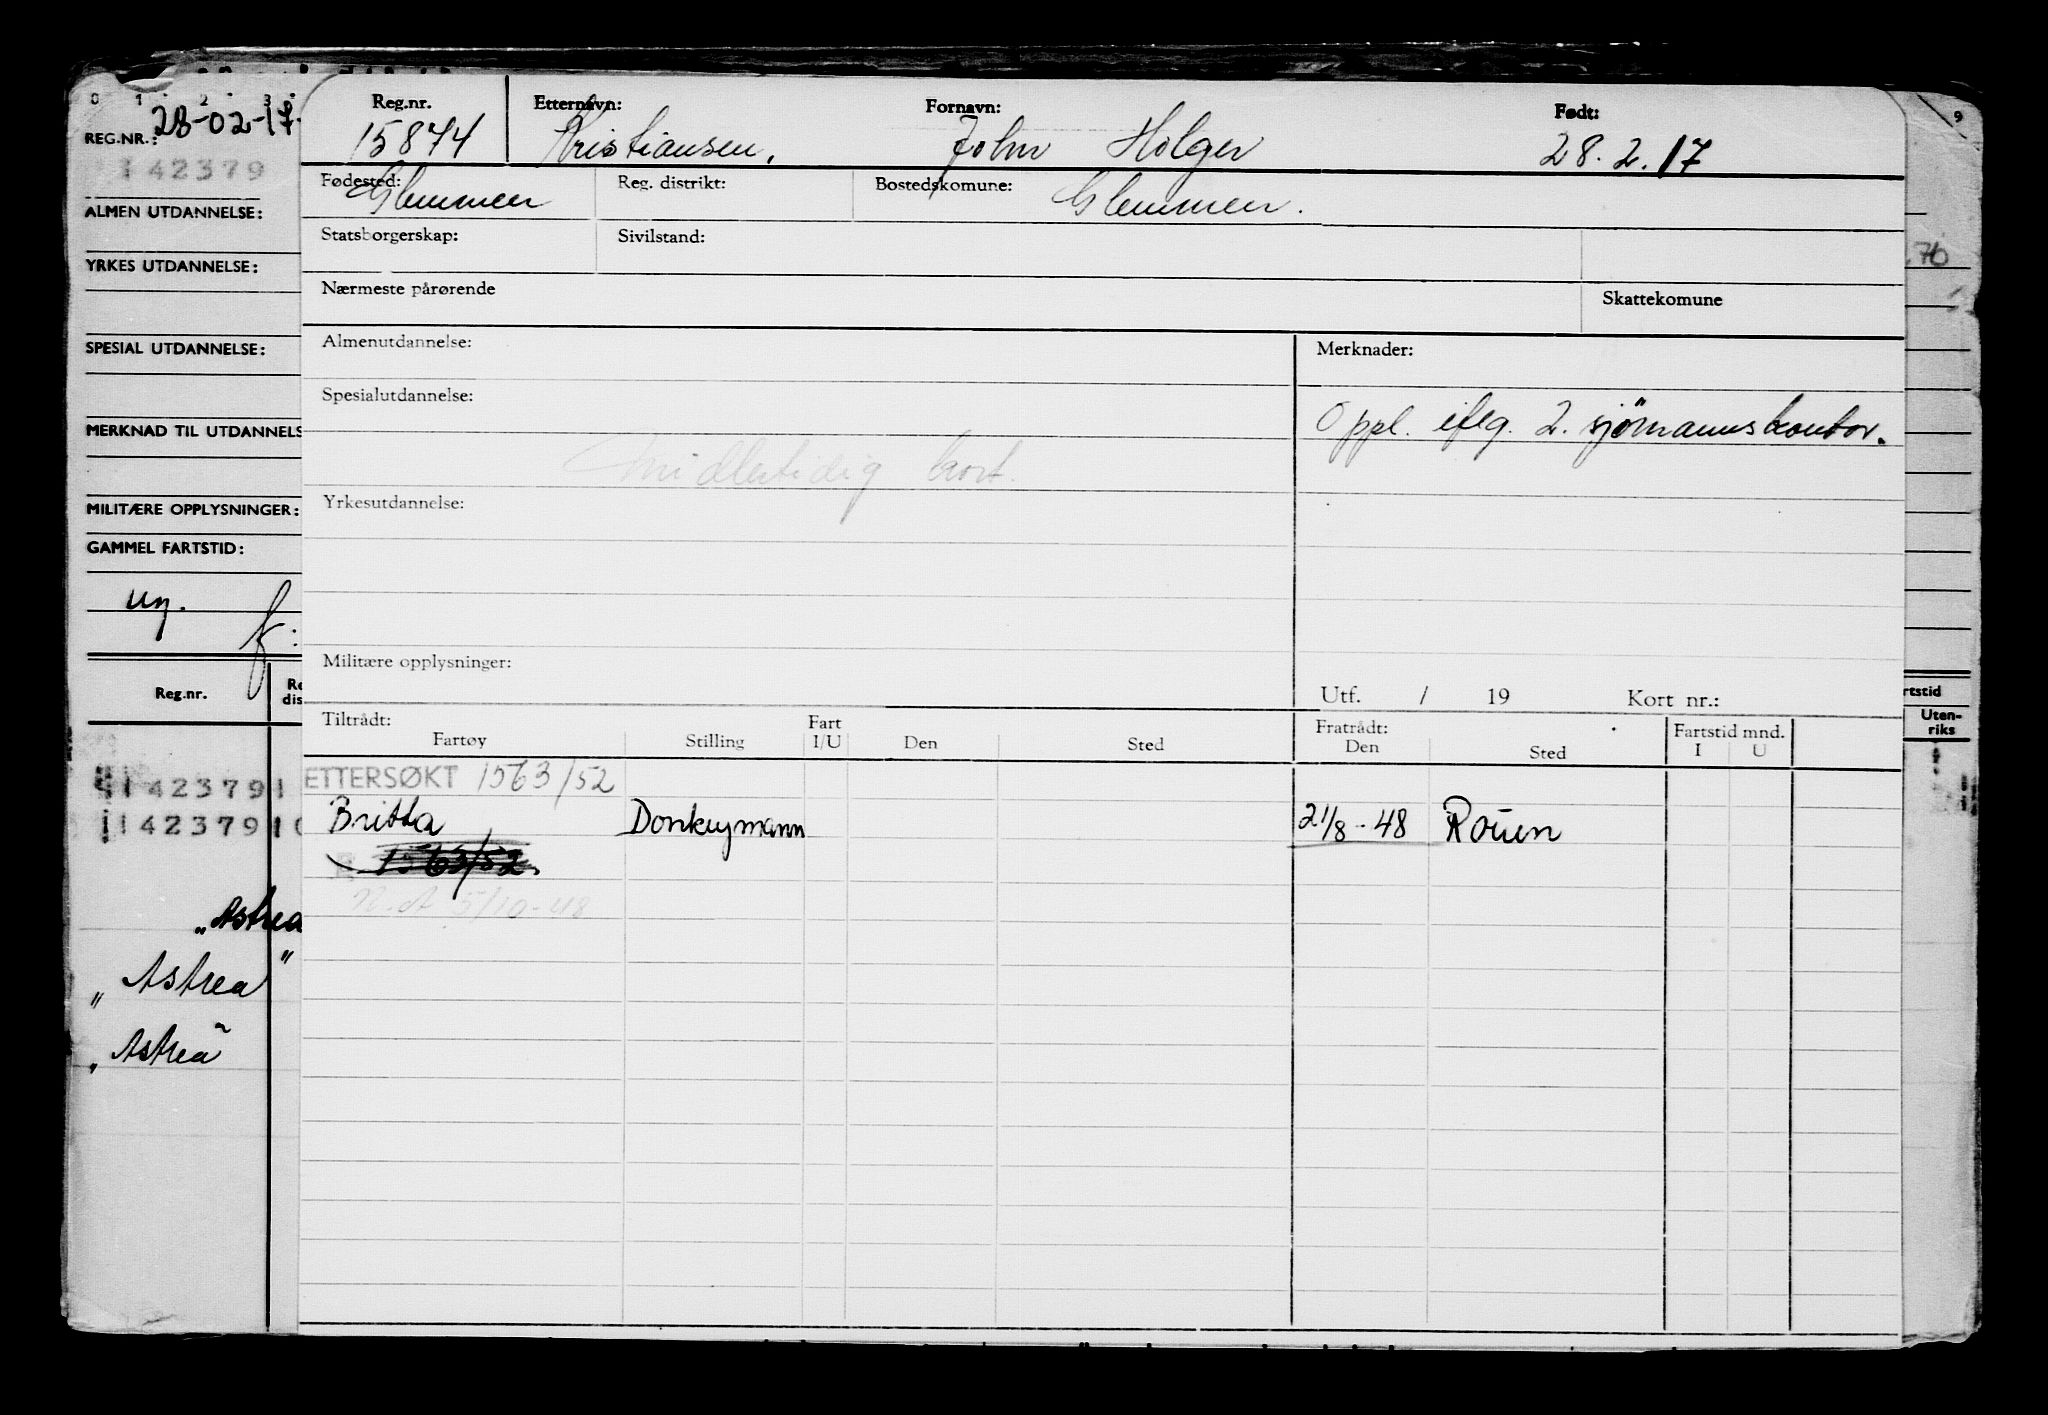 0 1 2 3
28-02-17.
REG.NR.:
142379
ALMEN UTDANNELSE:
YRKES UTDANNELSE:
SPESIAL UTDANNELSE:
MERKNAD TIL UTDANNELS
MILITÆRE OPPLYSNINGER:
GAMMEL FARTSTID:
un.
Reg.nr.
Re
dis
1423791
1423791
„Astrea
„Astrea"
„Astrea"
Reg.nr. Etternavn: Fornavn: Født:
15874 Kristiansen, John Holger 28.2.17
Fødested: Reg. distrikt: Bostedskomune:
Glemmen Glemmen.
Statsborgerskap: Sivilstand:
Nærmeste pårørende Skattekomune
Almenutdannelse: Merknader:
Spesialutdannelse:
Oppl. iflg. 2. sjömannskontor.
Midlertidig kort.
Yrkesutdannelse:
Militære opplysninger:
Utf. / 19 Kort nr.:
Tiltrådt: Fart Fratrådt: Fartstid mnd.
Fartøy Stilling I/U Den Sted Den Sted I U
ETTERSØKT 1563/52
Britta Donkeymann 21/8-48 Rouen
1563/52.
5/10-48
9
.76
rtstid
Uten-
riks